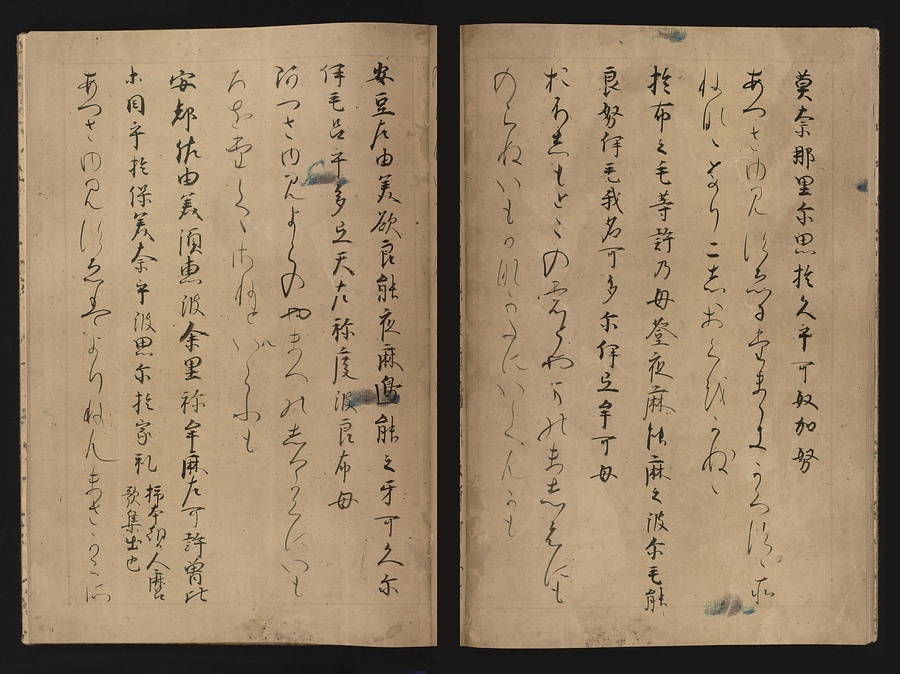 莫奈那里尓思於久乎可奴加努
あつさゆみすゑにたままきかくすゝそ
ねなゝなりにしおくをかぬゝ
於布之毛等許乃母登夜麻能麻之波尓毛能
良努伊毛我名可多尓伊弖牟可母
おふしもとこのもとやまのましはにも
のらぬいもかなかたにいてんかも
安豆左由美欲良能夜麻邊能之牙可久尓
伊毛呂乎多弖天左祢度波良布母
あつさゆみよらのやまへのしけかくにいも
ろをたてゝさねとはらふも
安都佐由美須惠波余里祢牟麻左可許曽比
等目乎於保美奈乎波思尓於家礼
柿本朝臣人麿
歌集出也
あつさゆみすゑはよりねんまさかこそ